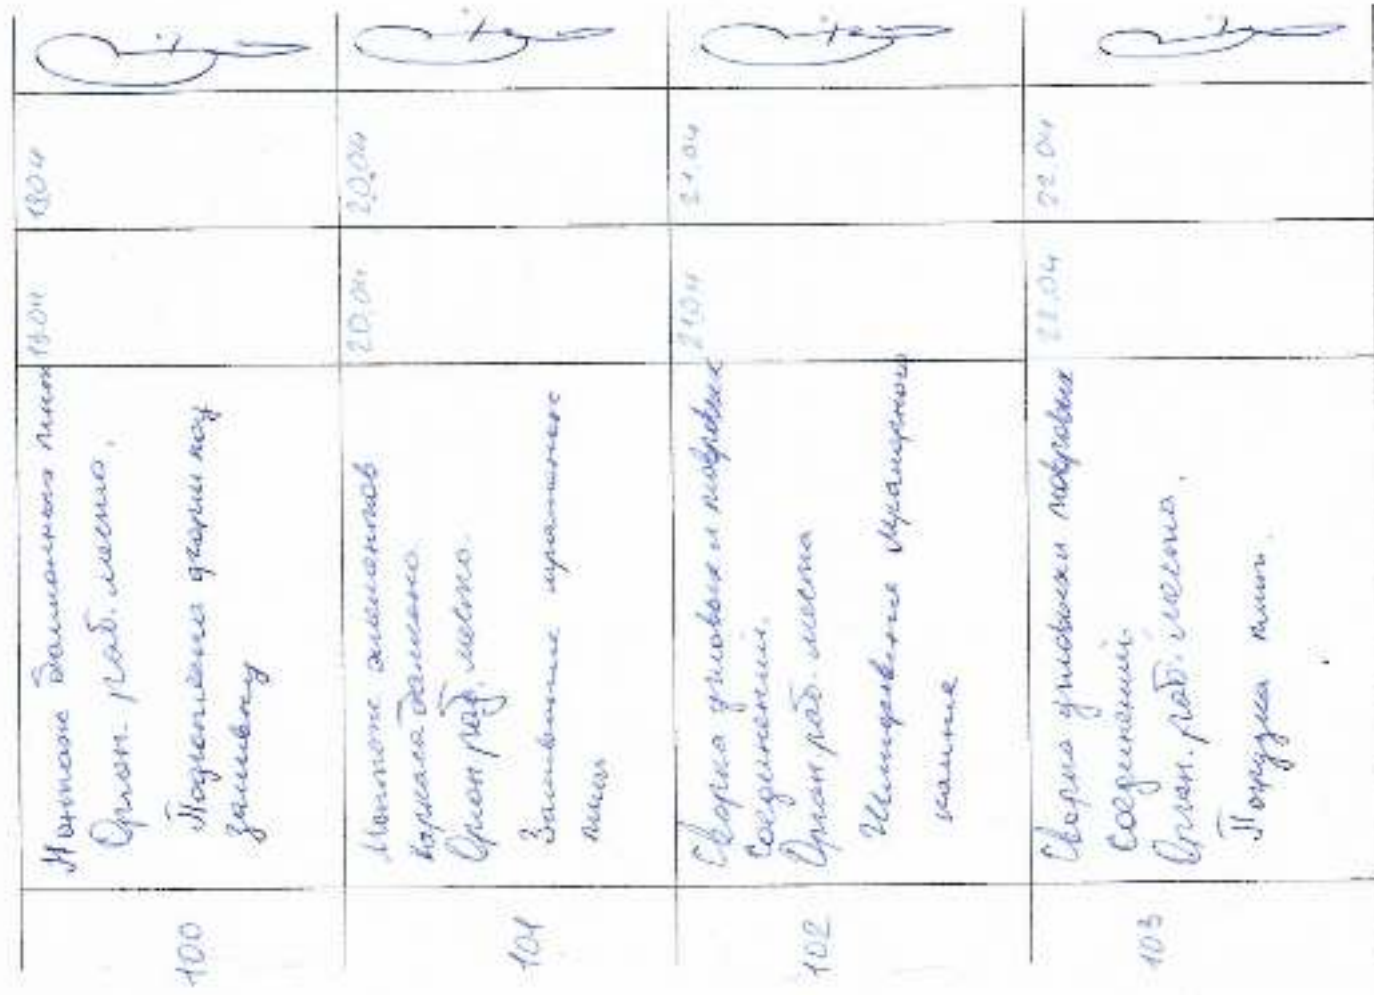 100
Монтаж балконных плит
Орган. раб. места.
Подготовка
заливку
19.04
19.04
101
Монтаж элементов
каркаса балкона.
Орган раб. места.
Заливание
плит
20.04
20.04
102
Сварка угловых и тавровых
соединений.
Орган. раб. места
Шлифование мраморного
камня
21.04
21.04
103
Сварка угловых и тавровых
соединений
Орган. раб. места.
Погрузка плит.
22.04
22.04